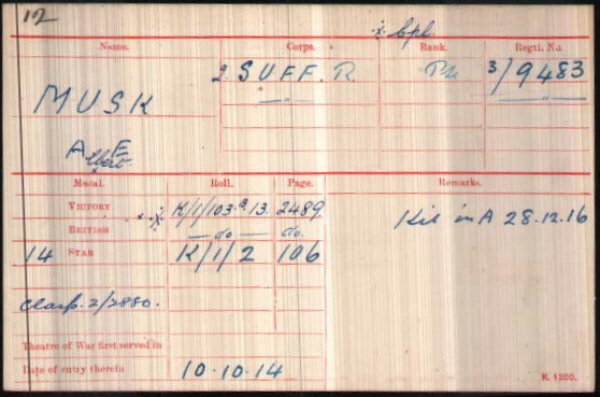 12
※ Cpl.
Name. Corps. Rank. Regtl. No.
2. SUFF. R. Pte 3/9483
MUSK
Albert E
Medal. Roll. Page. Remarks.
VICTORY K/1/103.B.13. 2489
BRITISH do do.
14 STAR K/1/2 106
Kil in A 28.12.16
Clasp. 2/2880.
Theatre of War first served in
Date of entry therein 10.10.14
K. 1380.